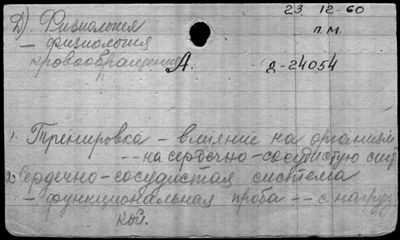 23 12-60
Д) Физиология
п.м.
- физиология
кровообращения
А.
д-24054
1. Тренировка - влияние на организм
-- на сердечно-сосудистую сист
2. Сердечно-сосудистая система
- функциональная проба -- с нагруз
кой.